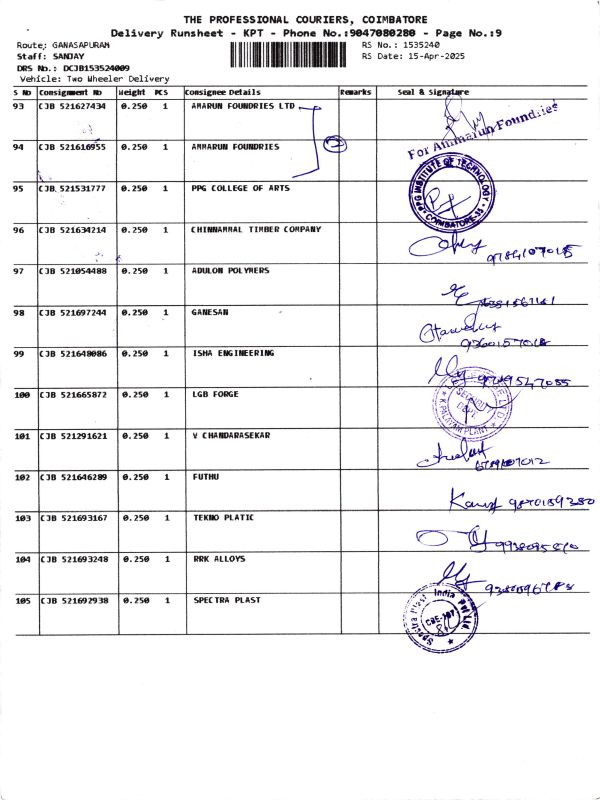 THE PROFESSIONAL COURIERS, COIMBATORE
Delivery Runsheet - KPT - Phone No.:9047080280 - Page No.:9
Route: GANASAPURAM
RS No.: 1535240
Staff: SANJAY
RS Date: 15-Apr-2025
DRS No.: DCJB153524009
Vehicle: Two Wheeler Delivery
S No Consignment No Weight PCS Consignee Details Remarks Seal & Signature
93 CJB 521627434 0.250 1 AMARUN FOUNDRIES LTD
For Ammarun Foundries
94 CJB 521616955 0.250 1 AMMARUN FOUNDRIES 2
95 CJB 521531777 0.250 1 PPG COLLEGE OF ARTS
PPG INSTITUTE OF TECHNOLOGY COIMBATORE-35
96 CJB 521634214 0.250 1 CHINNAMMAL TIMBER COMPANY
97 CJB 521054488 0.250 1 ADULON POLYMERS
98 CJB 521697244 0.250 1 GANESAN
99 CJB 521648086 0.250 1 ISHA ENGINEERING
100 CJB 521665872 0.250 1 LGB FORGE
SECURITY DEPT
101 CJB 521291621 0.250 1 V CHANDARASEKAR
102 CJB 521646289 0.250 1 FUTHU
103 CJB 521693167 0.250 1 TEKNO PLATIC
104 CJB 521693248 0.250 1 RRK ALLOYS
105 CJB 521692938 0.250 1 SPECTRA PLAST
Spectra Plast India Pvt Ltd. CBE-107